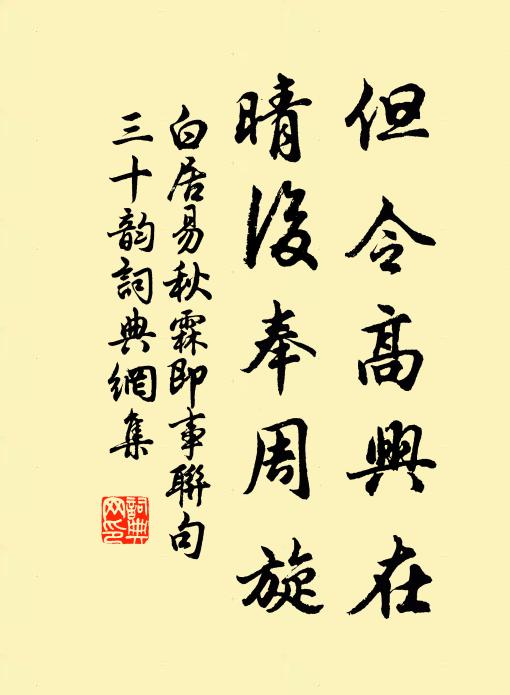 但令高興在
晴後奉周旋
白居易秋霖即事聯句
三十韵詞典網集
詞典
网印